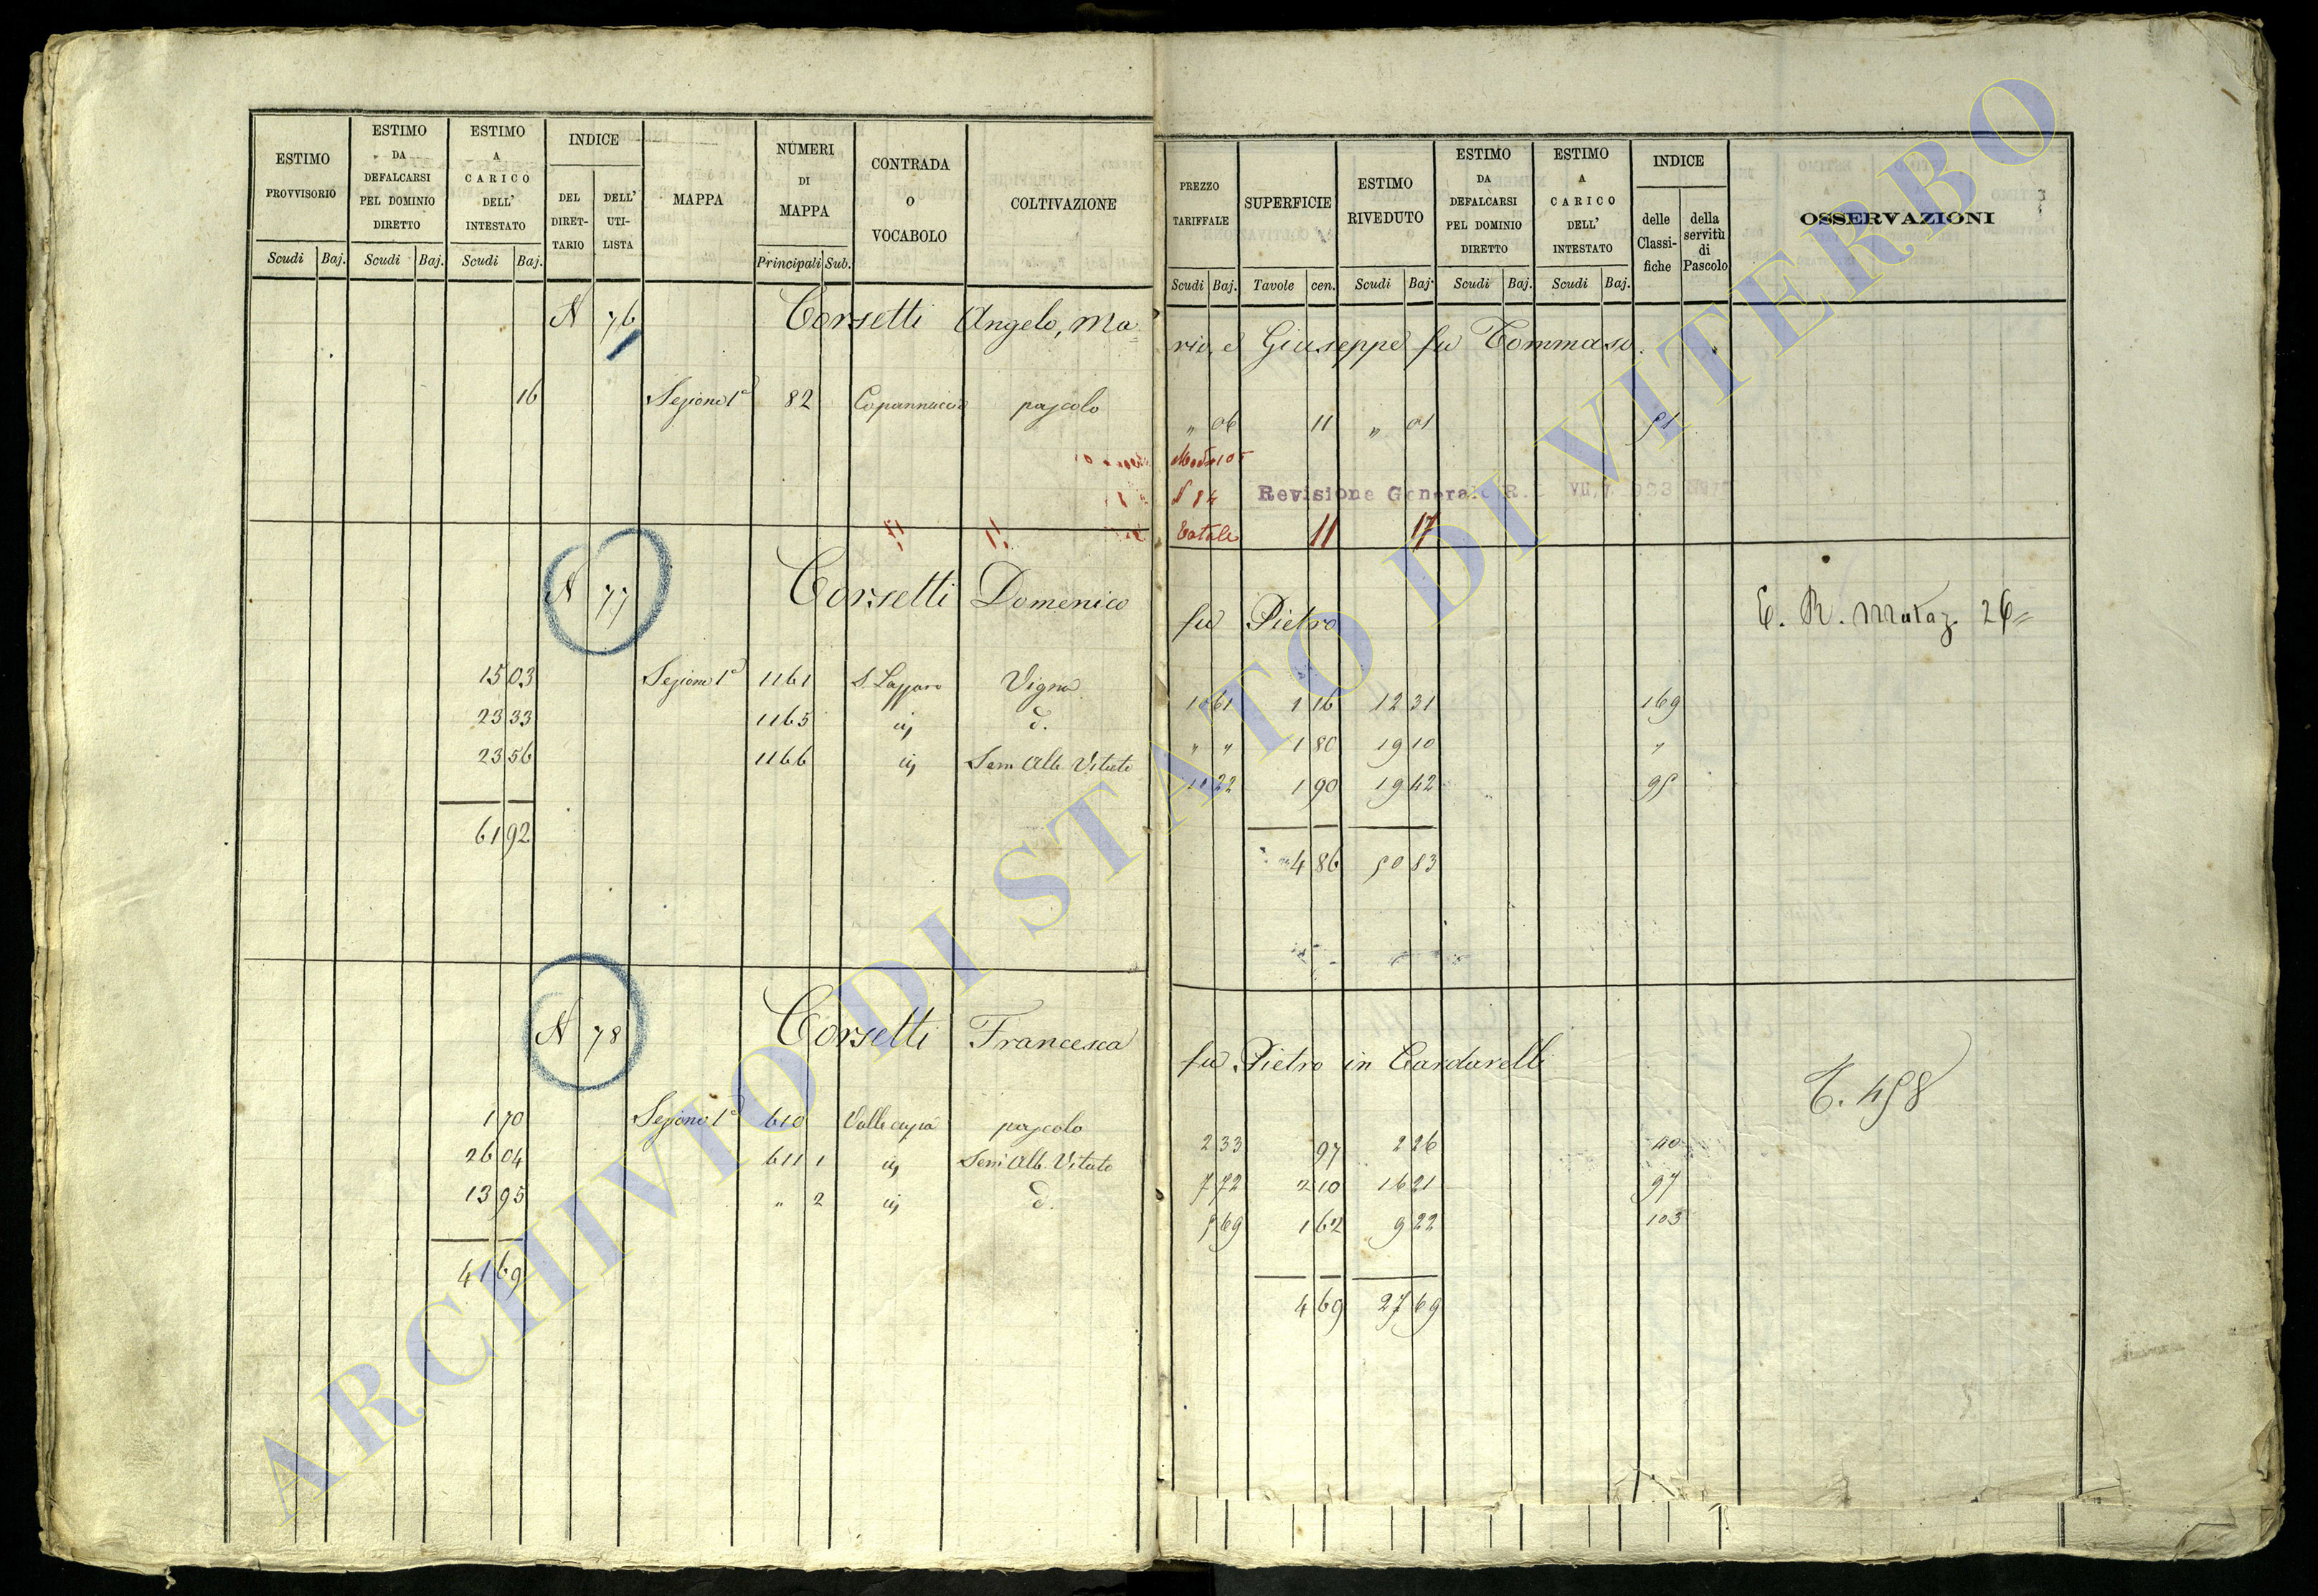 ESTIMO PROVVISORIO
Scudi Baj.
ESTIMO DA DEFALCARSI PEL DOMINIO DIRETTO
Scudi Baj.
ESTIMO A CARICO DELL' INTESTATO
Scudi Baj.
INDICE
DEL DIRET- TARIO
DELL' UTI- LISTA
MAPPA
NUMERI DI MAPPA
Principali Sub.
CONTRADA O VOCABOLO
COLTIVAZIONE
PREZZO TARIFFALE
Scudi Baj.
SUPERFICIE
Tavole cen.
ESTIMO RIVEDUTO
Scudi Baj.
ESTIMO DA DEFALCARSI PEL DOMINIO DIRETTO
Scudi Baj.
ESTIMO A CARICO DELL' INTESTATO
Scudi Baj.
INDICE
delle Classi- fiche
della servitù di Pascolo
OSSERVAZIONI
N 76 Corsetti Angelo, Ma=
rio, e Giuseppe fu Tommaso.
16 Sezione 1ª 82 Capannuccie pascolo
" 06 11 " 01 51
N 84
Revisione Generale R.
Totale 11 17
N 77 Corsetti Domenico
fu Pietro
E. R. Mutaz. 26
15 03 Sezione 1ª 1161 S. Lazzaro Vigna
10 61 1 16 12 31 169
23 33 1165 iij d.
" " 1 80 19 10 "
23 56 1166 iij Sem Alb Vitato
10 22 1 90 19 42 95
61 92
4 86 50 83
N 78 Corsetti Francesca
fu Pietro in Cardarelli
E. 458
1 70 Sezione 1ª 610 Valle cupa pascolo
2 33 97 2 26 40
26 04 611 1 iij Sem Alb. Vitato
7 72 2 10 16 21 97
13 95 " 2 iij d.
5 69 1 62 9 22 103
41 69
4 69 27 69
ARCHIVIO DI STATO DI VITERBO